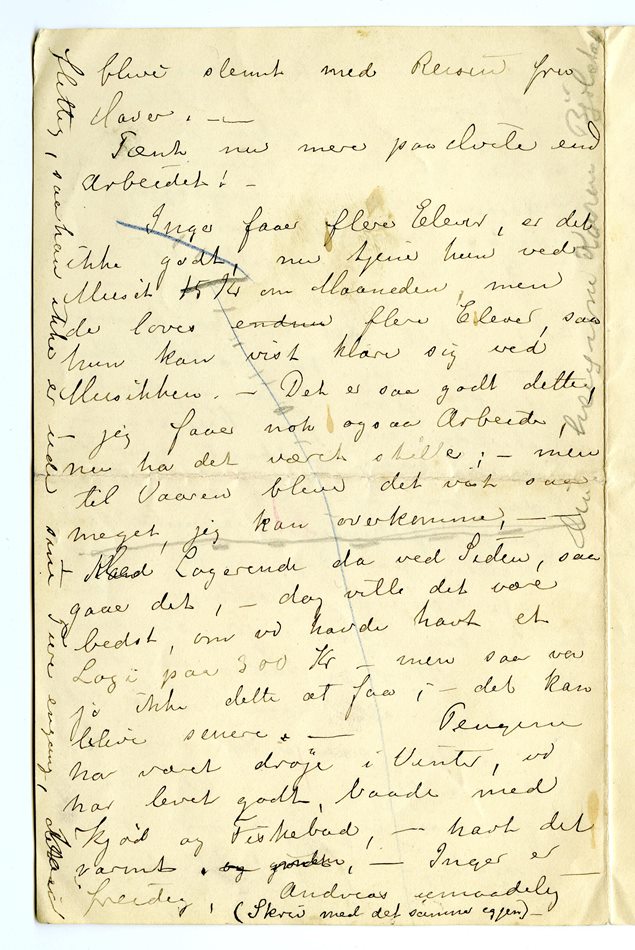 blive slemt med Reisen fra
Haver. —
Tænk nu mere paa hvile end
Arbeidet! —
Inga faaer flere Elever, er det
ikke godt, nu tjene hun ved
Musik 15 Kr om Maaneden, men
de loves endnu flere Elever, saa
hun kan vist klare sig ved
Musikken. — Det er saa godt dette,
jeg faaer nok ogsaa Arbeide,
nu ha det været stille; — men
til Vaaren blive det vist saa
meget, jeg kan overkomme, —
Med Logerende da ved Siden, saa
gaae det, — dog vilde det være
bedst, om vi havde havt et
Logi paa 300 Kr — men saa var
jo ikke dette at faa; — det kan
blive senere. — Pengene
har været drøje i Vinter, vi
har levet godt, baade med
Kjød og Fiskebad, — havt det
varmt. og, — Inger er
freidig, Andreas umaadelig
(Skriv med det samme igjen) —
flettig, saa han ikke er ude sine Ture engang,